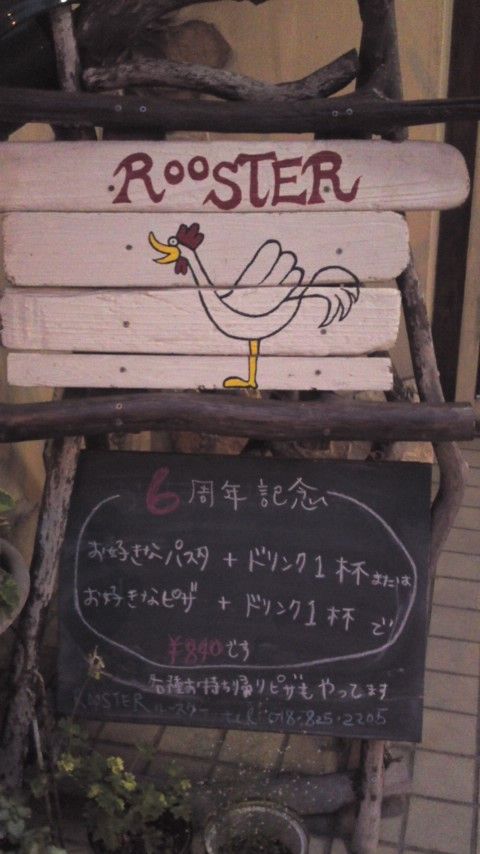 ROOSTER
6周年記念
お好きなパスタ + ドリンク1杯 または
お好きなピザ + ドリンク1杯 で
¥840です
各種お持ち帰りピザも やってます
ROOSTER ルースター tel 078-825-2205